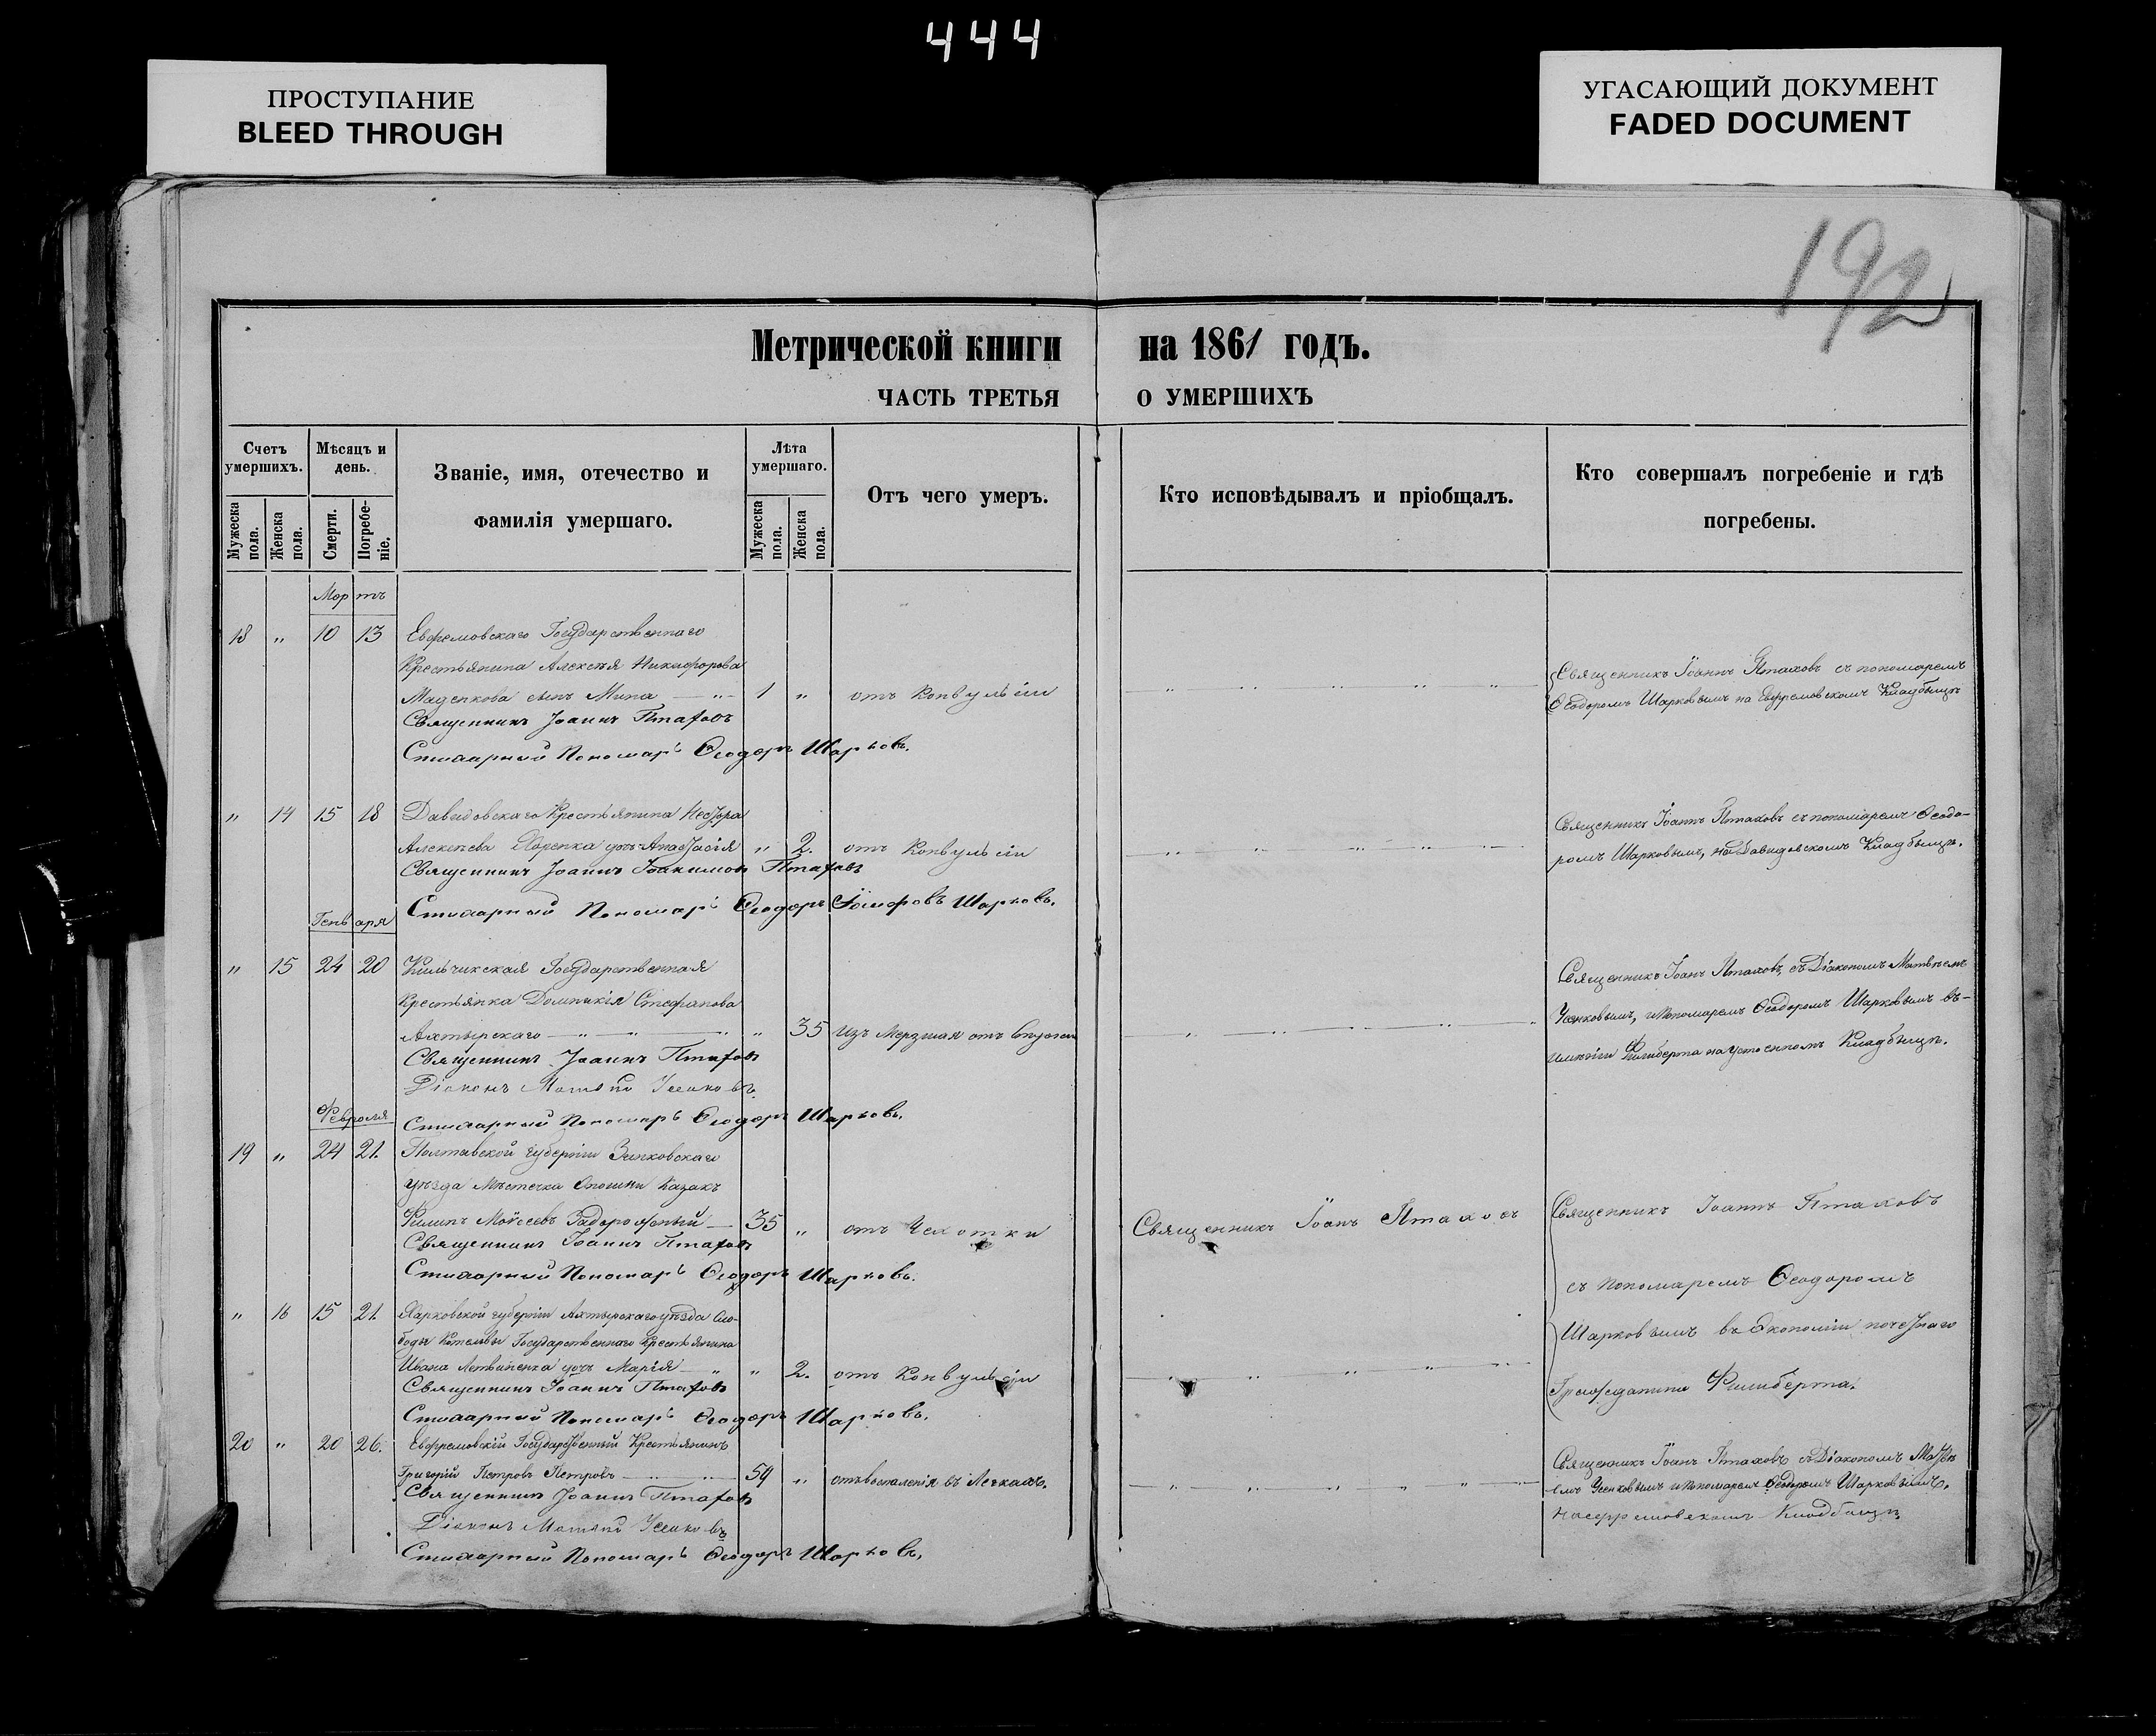 444
ПРОСТУПАНИЕ
BLEED THROUGH
УГАСАЮЩИЙ ДОКУМЕНТ
FADED DOCUMENT
192
Метрической книги на 1861 годъ.
ЧАСТЬ ТРЕТЬЯ О УМЕРШИХЪ
Счетъ умершихъ.
Мужеска пола.
Женска пола.
Мѣсяцъ и день.
Смерти.
Погребеніе.
Званіе, имя, отечество и
фамилія умершаго.
Лѣта умершаго.
Мужеска пола.
Женска пола.
Отъ чего умеръ.
Кто исповѣдывалъ и пріобщалъ.
Кто совершалъ погребеніе и гдѣ
погребены.
Мартъ
18 " 10 13 Ефремовскаго Государственнаго
Крестьянина Алексѣя Никифорова
сынъ Мина 1 " отъ Конвульсіи
Священникъ Іоаннъ Птаховъ съ пономаремъ
Ѳеодоромъ Шарковымъ на Ефремовскомъ Кладбищѣ
Священникъ Іоаннъ Птаховъ
Стихарный Пономарь Ѳеодоръ Шарковъ.
" 14 15 18 Давидовскаго Крестьянина
Алексѣева дочь Анастасія " 2. отъ Конвульсіи
Священникъ Іоаннъ Птаховъ съ пономаремъ Ѳеодо-
ромъ Шарковымъ, на Давидовскомъ Кладбищѣ.
Священникъ Іоаннъ Іоакимовъ Птаховъ
Стихарный Пономарь Ѳеодоръ Іосифовъ Шарковъ.
Генваря
" 15 24 20 Кильчикская Государственная
Крестьянка Домникія Стефанова
Ахтырскаго " 35
Священникъ Іоанъ Птаховъ, съ Діакономъ Матвѣемъ
Усенковымъ, и Пономаремъ Ѳеодоромъ Шарковымъ въ-
имѣніи Филиберта на Кладбищѣ.
Священникъ Іоаннъ Птаховъ
Діаконъ Матвѣй Усенковъ
Стихарный Пономарь Ѳеодоръ Шарковъ.
Февраля
19 " 24 21. Полтавской Губерніи Зиньковскаго
уѣзда Мѣстечка Опошни Казакъ
Филипъ Мойсеевъ Задорожный 35 " отъ Чахотки
Священникъ Іоанъ Птаховъ
Священникъ Іоаннъ Птаховъ
съ пономаремъ Ѳеодоромъ
Шарковымъ въ Экономіи почетнаго
Гражданина Филиберта.
Священникъ Іоаннъ Птаховъ
Стихарный Пономарь Ѳеодоръ Шарковъ.
" 16 15 21. Харковской губерніи Ахтырскаго уѣзда Сло-
боды Котельвы Государственнаго Крестьянина
Ивана Летвиненка дочь Марія " 2. отъ Конвульсіи
Священникъ Іоаннъ Птаховъ
Стихарный Пономарь Ѳеодоръ Шарковъ.
20 " 20 26. Ефремовскій Государственный Крестьянинъ
Григорій Петровъ Петровъ 59 " отъ воспаленія въ Легкахъ.
Священникъ Іоанъ Птаховъ съ Діакономъ Матвѣ-
емъ Усенковымъ и Пономаремъ Ѳеодоромъ Шарковымъ.
на Ефремовскомъ Кладбищѣ
Священникъ Іоаннъ Птаховъ
Діаконъ Матвѣй Усенковъ
Стихарный Пономарь Ѳеодоръ Шарковъ.